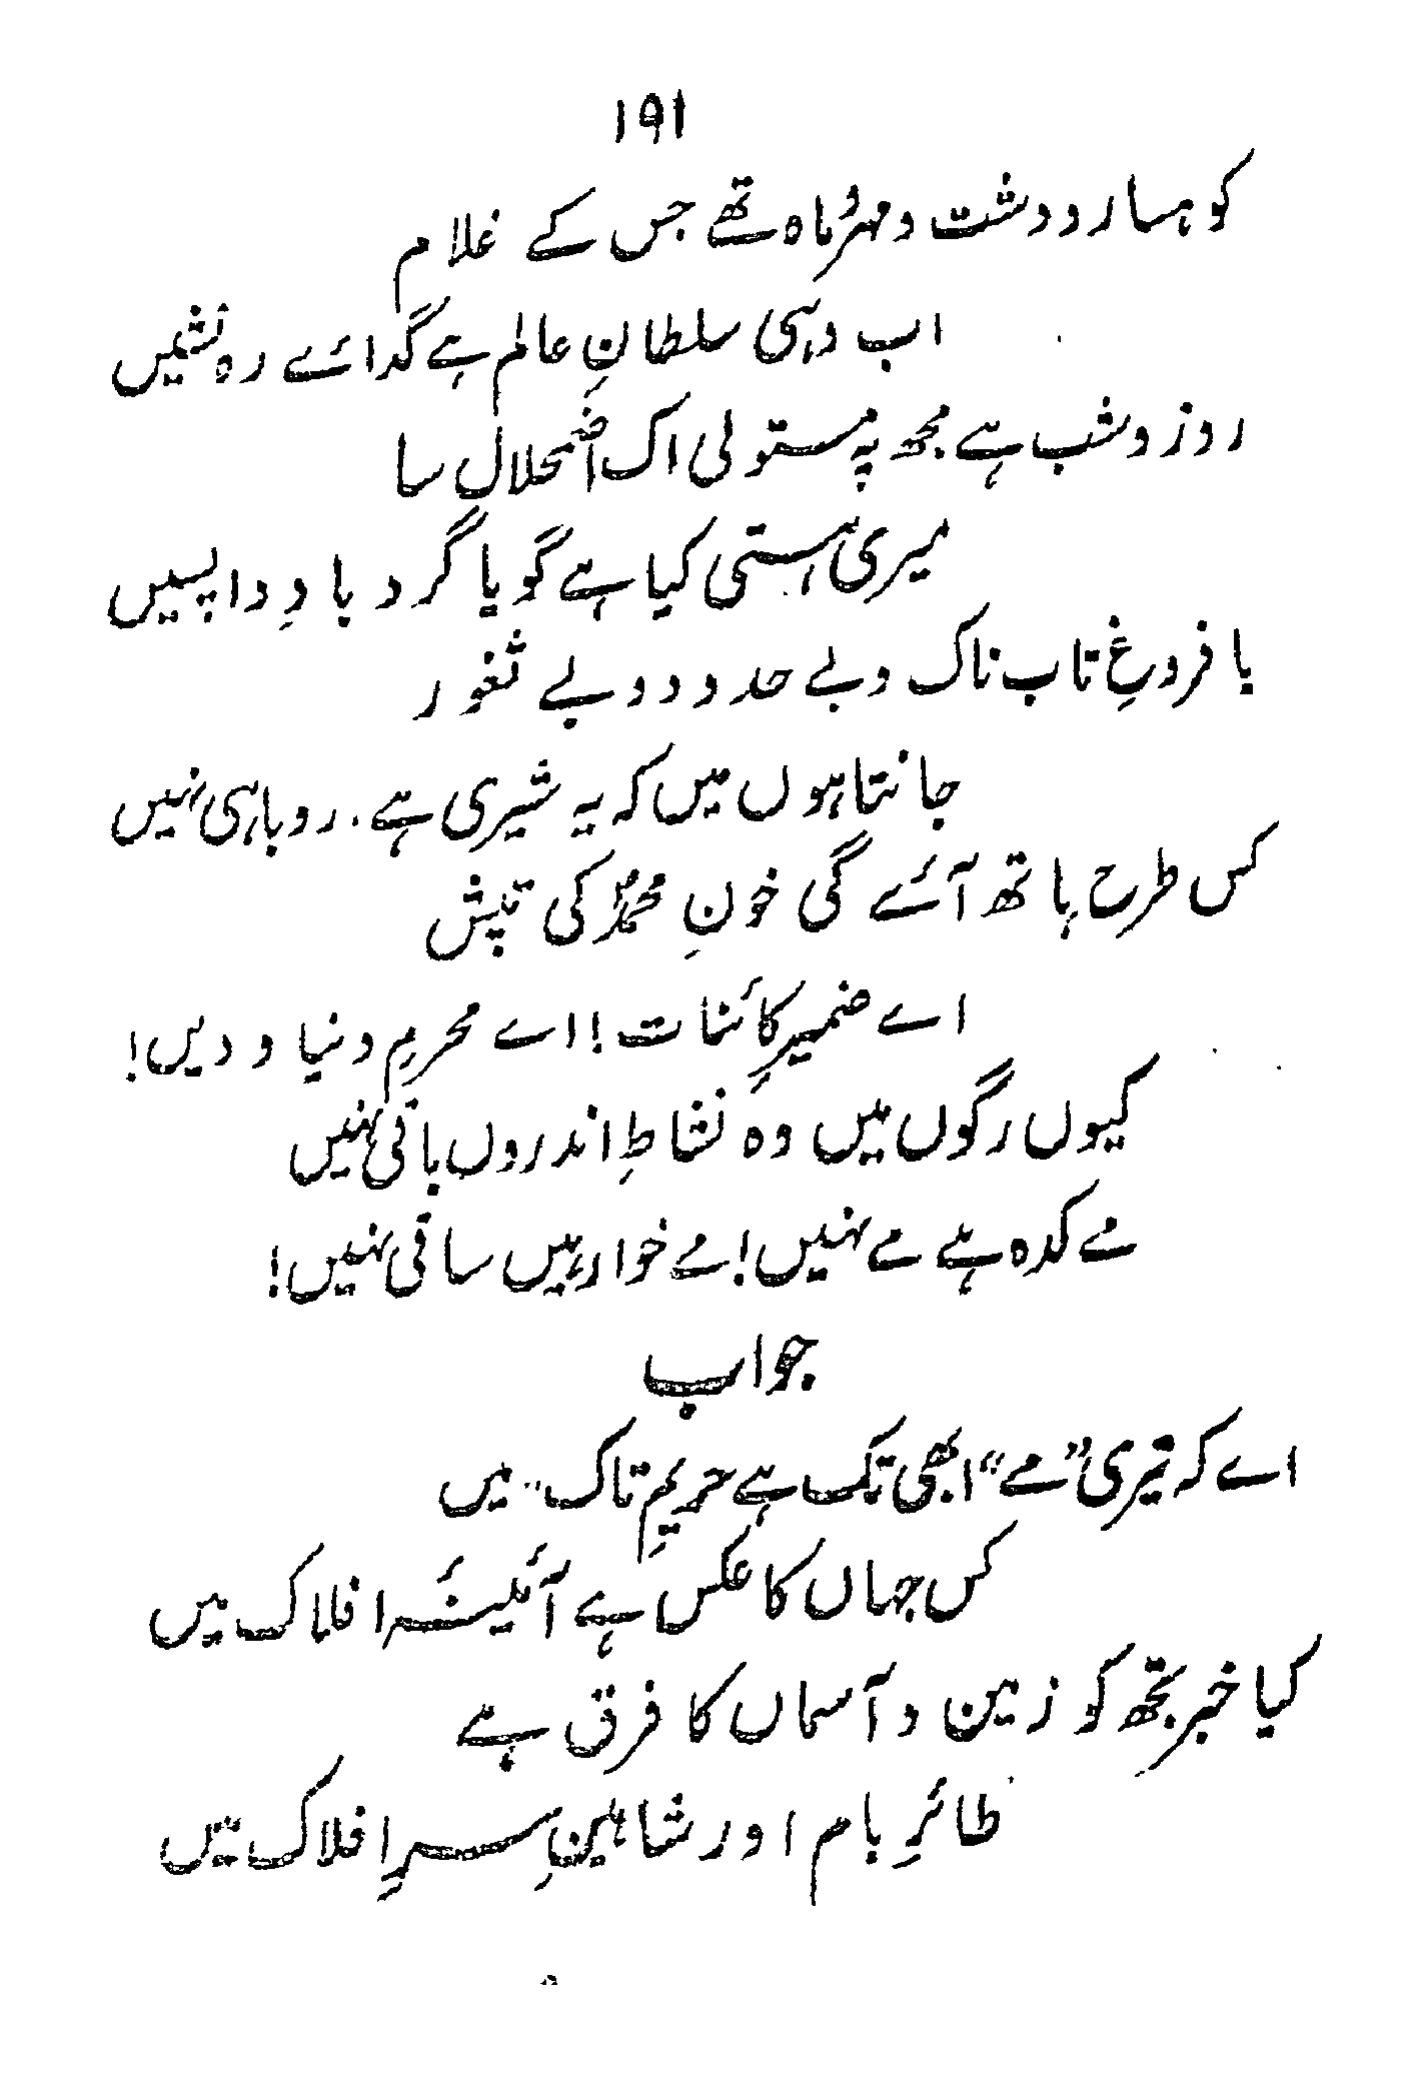 ۱۹۱
کوہسار و دشت و مہر و ماہ تھے جس کے غلام
اب وہی سلطانِ عالم ہے گدائے رہ نشیں
روز و شب ہے مجھ پہ مستولی اک اضمحلال سا
میری ہستی کیا ہے گویا گرد بادِ واپسیں
با فروغِ تاب ناک و بے حدود و بے ثغور
جانتا ہوں میں کہ یہ شیری ہے. روباہی نہیں
کس طرح ہاتھ آئے گی خونِ محمدؐ کی تپش
اے ضمیرِ کائنات! اے محرمِ دنیا و دیں!
کیوں رگوں میں وہ نشاطِ اندروں باقی نہیں
مے کدہ ہے مے نہیں! مے خوار ہیں ساقی نہیں!
جواب
اے کہ تیری "مے" ابھی تک ہے حریمِ تاک میں
کس جہاں کا عکس ہے آئینۂ افلاک میں
کیا خبر تجھ کو زمین و آسماں کا فرق ہے
طائرِ بام اور شاہینِ سرِ افلاک میں